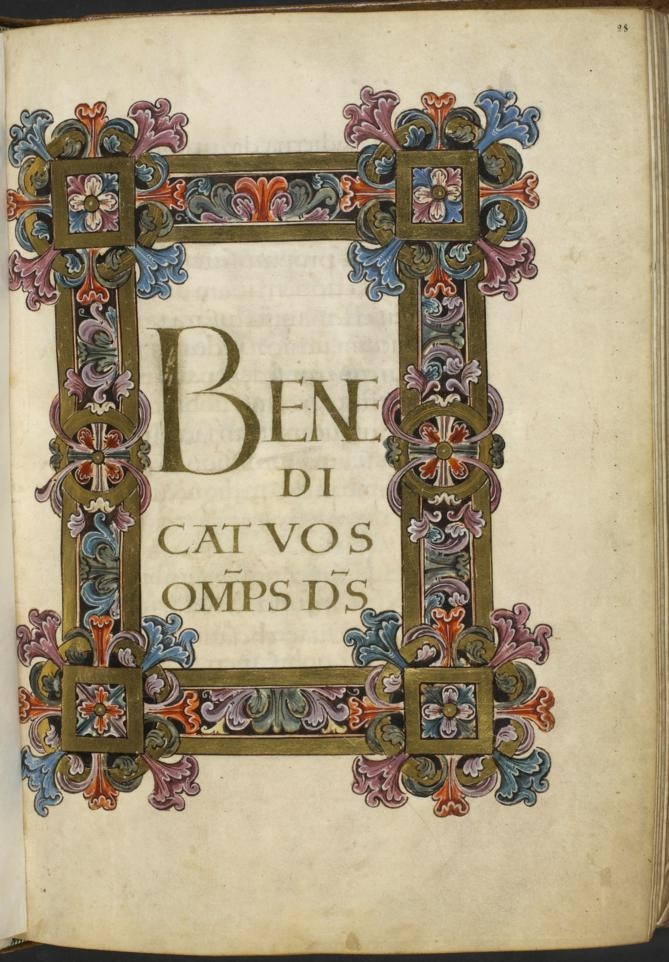 28
BENE
DI
CAT VOS
OM̅PS D̅S